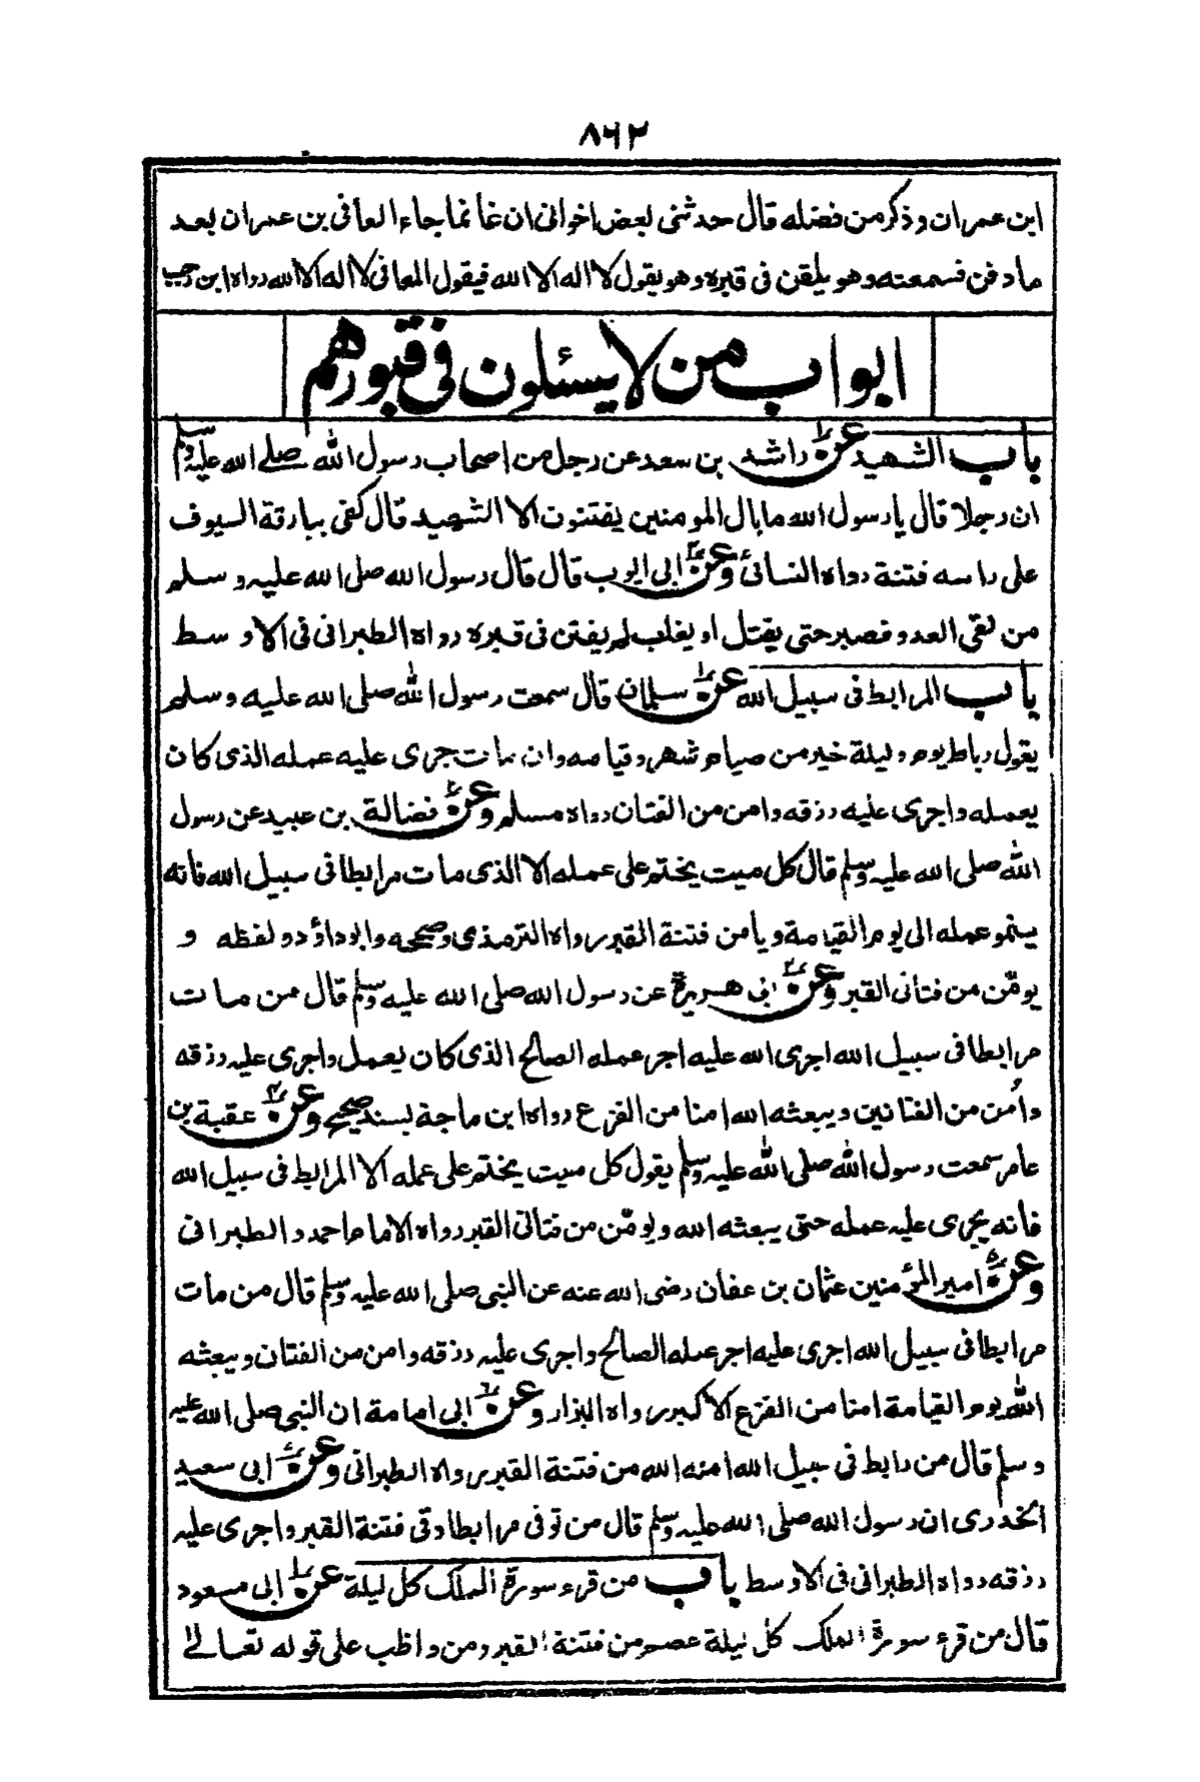 ٨٦٢
ابن عمران وذكر من فضله قال حدثني بعض اخواني ان غانما جاء المعافى بن عمران بعد
ما دفن فسمعته وهو يلقن فى قبره وهو يقول لا اله الا الله فيقول المعافى لا اله الا الله رواه ابن رجب
ابواب من لا يسئلون فى قبورهم
باب الشهيد عن راشد بن سعد عن رجل من اصحاب رسول الله صلے الله عليه وسلم
ان رجلا قال يا رسول الله ما بال المومنين يفتنون الا الشهيد قال كفى ببارقة السيوف
على راسه فتنة رواه النسائى وعن ابى ايوب قال قال رسول الله صلى الله عليه وسلم
من لقى العدو فصبر حتى يقتل او يغلب لم يفتن فى قبره رواه الطبرانى فى الاوسط
باب المرابط فى سبيل الله عن سلمان قال سمعت رسول الله صلى الله عليه وسلم
يقول رباط يوم وليلة خير من صيام شهر وقيامه وان مات جرى عليه عمله الذى كان
يعمله واجرى عليه رزقه وامن من الفتان رواه مسلم وعن فضالة بن عبيد عن رسول
الله صلى الله عليه وسلم قال كل ميت يختم على عمله الا الذى مات مرابطا فى سبيل الله فانه
ينمو عمله الى يوم القيامة ويأمن فتنة القبر رواه الترمذى وصححه وابوداؤد ولفظه و
يومّن من فتانى القبر وعن ابى هريرة عن رسول الله صلى الله عليه وسلم قال من مات
مرابطا فى سبيل الله اجرى الله عليه اجر عمله الصالح الذى كان يعمل واجرى عليه رزقه
وأمن من الفتانين ويبعثه الله امنا من الفزع رواه ابن ماجة بسند صحيح وعن عقبة بن
عامر سمعت رسول الله صلى الله عليه وسلم يقول كل ميت يختم على عمله الا المرابط فى سبيل الله
فانه يجرى عليه عمله حتى يبعثه الله ويومّن من فتانى القبر رواه الامام احمد والطبرانى
وعن امير المؤمنين عثمان بن عفان رضى الله عنه عن النبى صلى الله عليه وسلم قال من مات
مرابطا فى سبيل الله اجرى عليه اجر عمله الصالح واجرى عليه رزقه وامن من الفتان ويبعثه
الله يوم القيامة امنا من الفزع الاكبر رواه البزار وعن ابى امامة ان النبى صلى الله عليه
وسلم قال من رابط فى سبيل الله امنه الله من فتنة القبر رواه الطبرانى وعن ابى سعيد
الخدرى ان رسول الله صلى الله عليه وسلم قال من توفى مرابطا وقى فتنة القبر واجرى عليه
رزقه رواه الطبرانى فى الاوسط باب من قرء سورة الملك كل ليلة عن ابى مسعود
قال من قرء سورة الملك كل ليلة عصم من فتنة القبر ومن واظب على قوله تعالےٰ